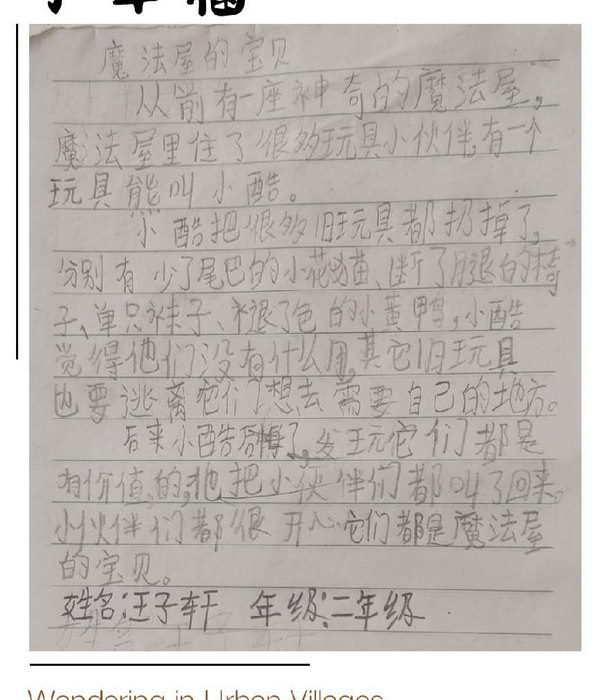 魔法屋的宝贝
从前有一座神奇的魔法屋,
魔法屋里住了很多玩具小伙伴,有一个
玩具熊叫小酷。
小酷把很多旧玩具都扔掉了,
分别有少了尾巴的小花猫、断了腿的椅
子、单只袜子、褪了色的小黄鸭,小酷
觉得他们没有什么用,其它旧玩具
也要逃离它们想去需要自己的地方。
后来小酷后悔了,发现它们都是
有价值的,他把小伙伴们都叫了回来。
小伙伴们都很开心它们都是魔法屋
的宝贝。
姓名:王子轩 年级:二年级